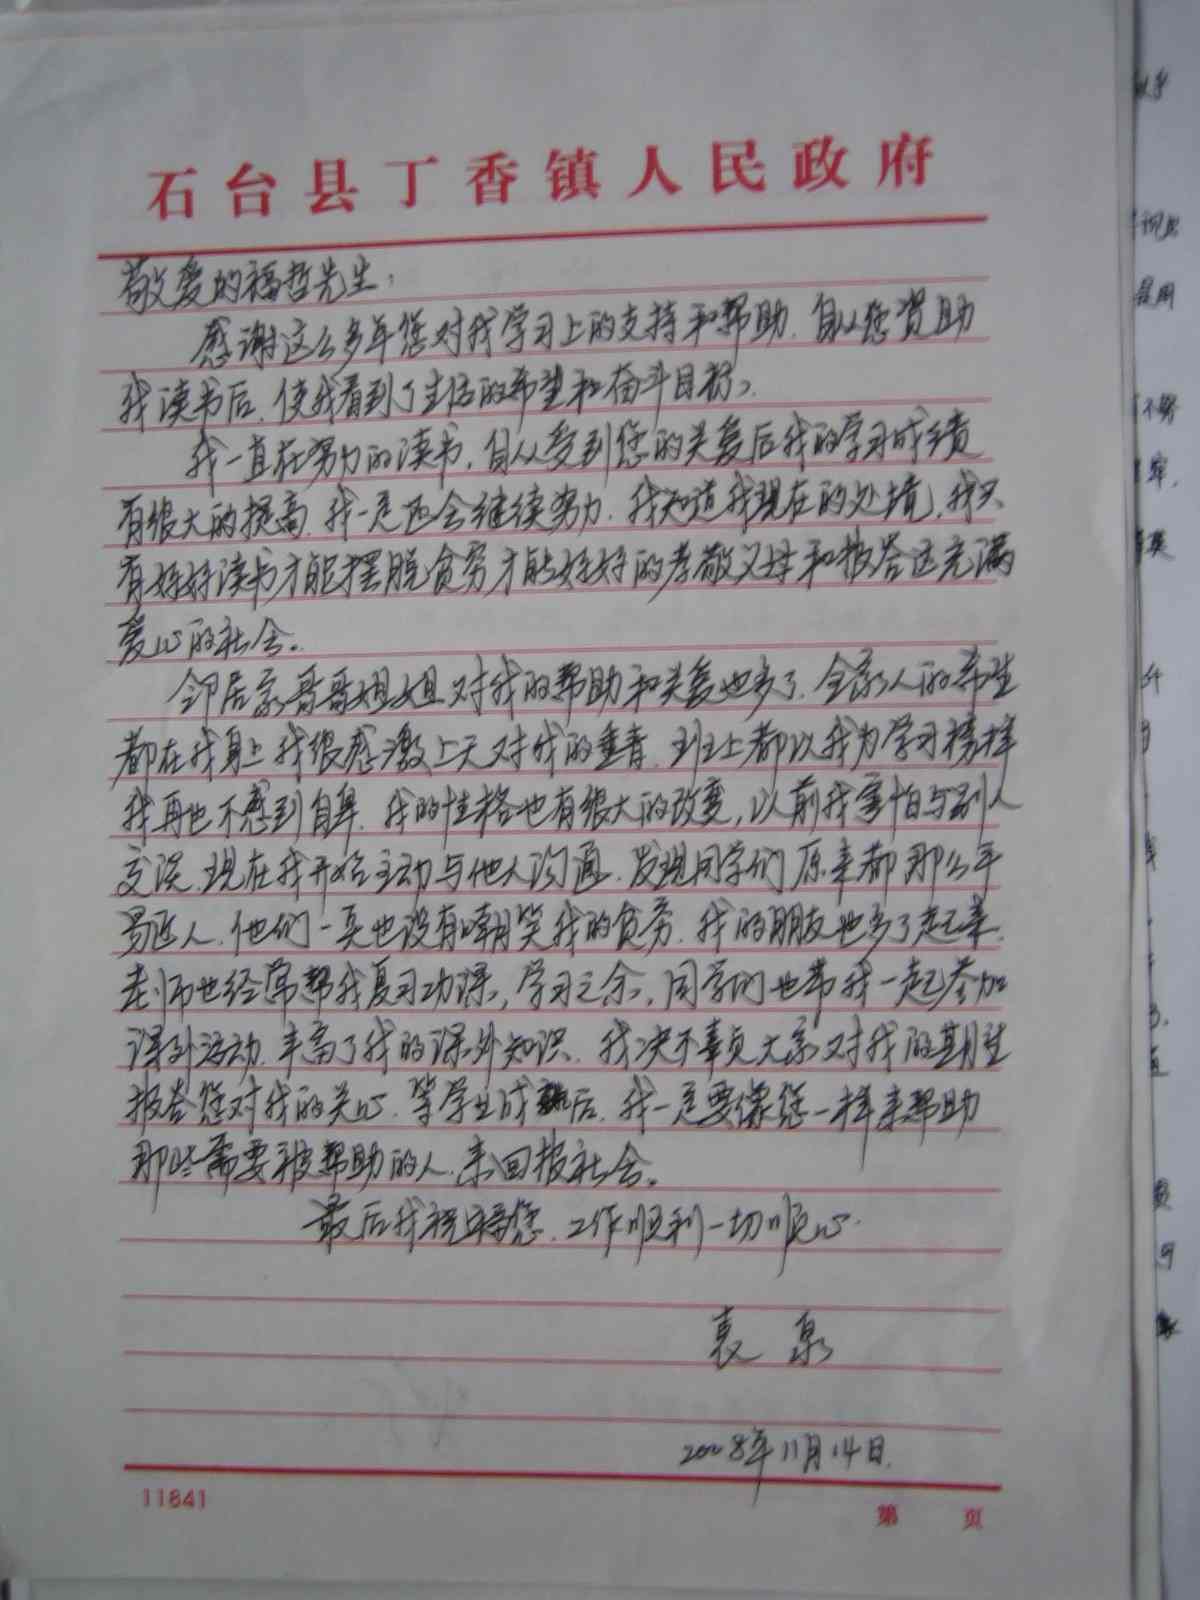 石台县丁香镇人民政府
敬爱的福哲先生：
感谢这么多年您对我学习上的支持和帮助.自从您资助
我读书后.使我看到了生活的希望和奋斗目标。
我一直在努力的读书.自从受到您的关爱后我的学习成绩
有很大的提高.我一定还会继续努力.我知道我现在的处境,我只
有好好读书才能摆脱贫穷才能好好的孝敬父母和报答这充满
爱心的社会。
邻居家哥哥姐姐对我的帮助和关爱也多了.全家人的希望
都在我身上我很感激上天对我的垂青.班上都以我为学习榜样
我再也不感到自卑.我的性格也有很大的改变,以前我害怕与别人
交谈.现在我开始主动与他人沟通.发现同学们原来都那么平
易近人.他们一点也没有嘲笑我的贫穷.我的朋友也多了起来.
老师也经常帮我复习功课,学习之余,同学们也带我一起参加
课外活动.丰富了我的课外知识.我决不辜负大家对我的期望
报答您对我的关心.等学业成熟后.我一定要像您一样来帮助
那些需要被帮助的人.来回报社会。
最后我祝福您.工作顺利一切顺心.
袁泉
2008年11月14日.
11841
第 页